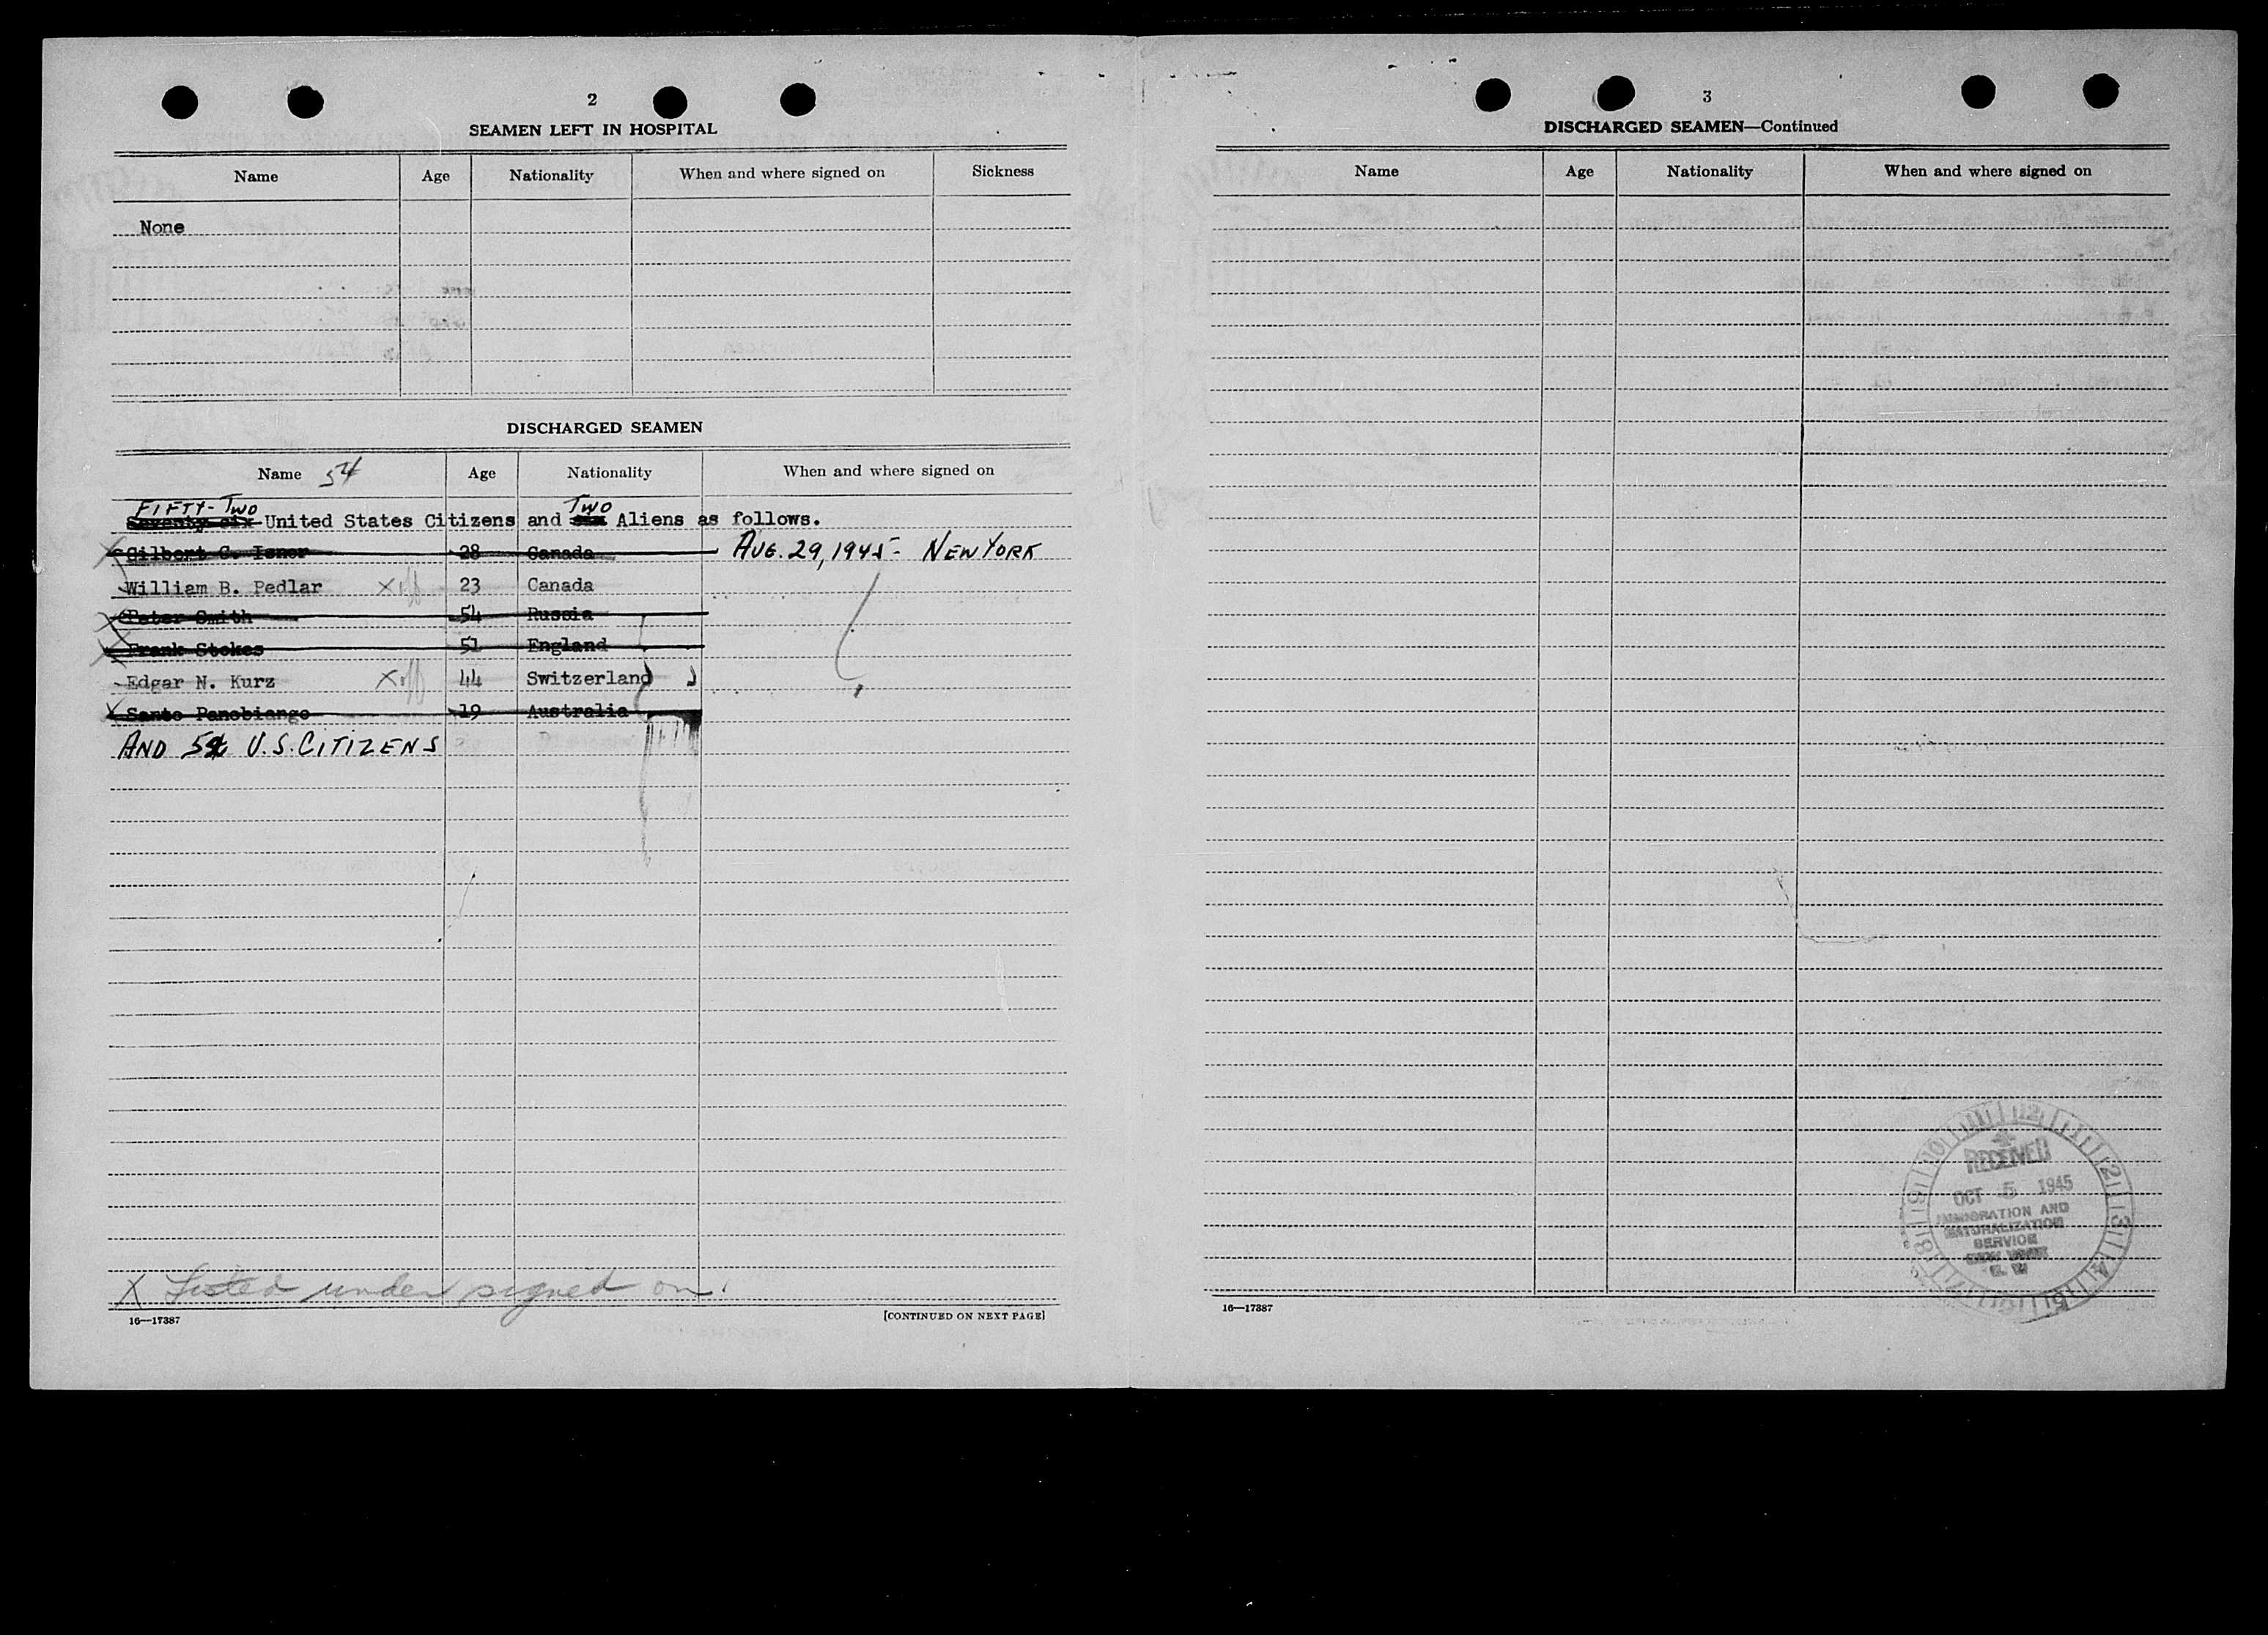 2
SEAMEN LEFT IN HOSPITAL
Name Age Nationality When and where signed on Sickness
None
DISCHARGED SEAMEN
Name 54 Age Nationality When and where signed on
FIFTY-TWO TWO
Seventy six United States Citizens and six Aliens as follows.
Gilbert C. Isnor 28 Canada AUG. 29, 1945- NEW YORK
William B. Pedlar X off 23 Canada
Peter Smith 54 Russia
Frank Stokes 51 England
Edgar N. Kurz X off 44 Switzerland
Santo Panobiango 19 Australia
AND 52 U.S. CITIZENS
X Listed under signed on.
16—17387 [CONTINUED ON NEXT PAGE]
3
DISCHARGED SEAMEN—Continued
Name Age Nationality When and where signed on
RECEIVED
OCT 5 1945
IMMIGRATION AND
NATURALIZATION
SERVICE
NEW YORK
16—17387